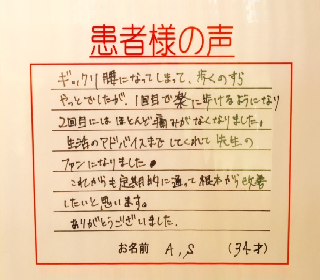 患者様の声
ギックリ腰になってしまって、歩くのすら
やっとでしたが、1回目で楽に歩けるようになり
2回目にはほとんど痛みがなくなりました。
生活のアドバイスまでしてくれて先生の
ファンになりました。
これからも定期的に通って根本から改善
したいと思います。
ありがとうございました。
お名前 A,S (34才)